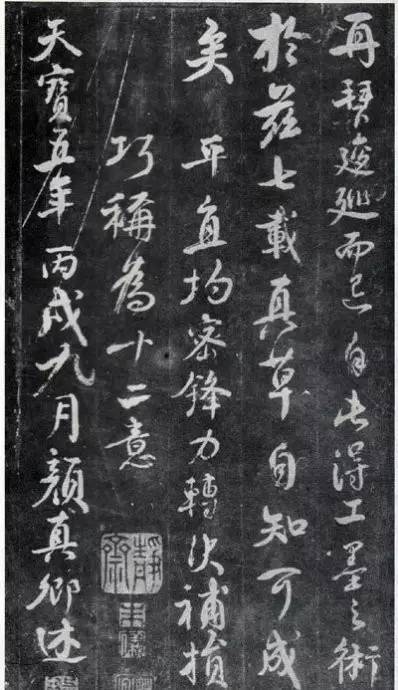 再拜逡巡而退自此得工墨之術
於茲七載真草自知可成
矣 平直均密鋒力轉決補損
巧稱為十二意
天寶五年丙戌九月顏真卿述
靜
齋